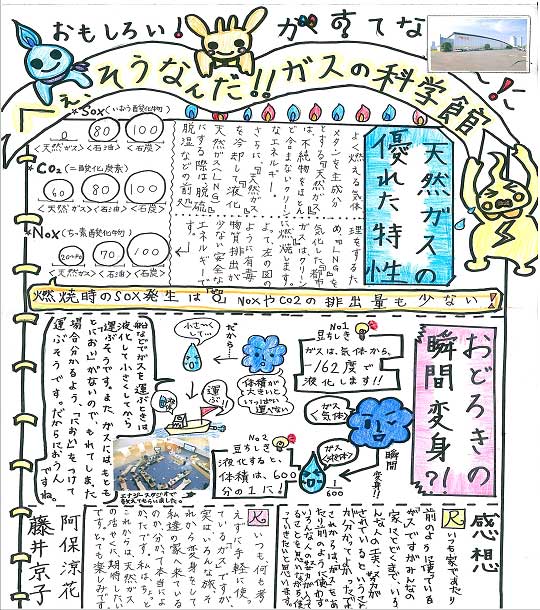 おもしろい!
ガすてな
へぇ、そうなんだ!!ガスの科学館
*SOx(いおう酸化物)
0
80
100
<天然ガス><石油><石炭>
*CO2(二酸化炭素)
60
80
100
<天然ガス><石油><石炭>
*NOx(ちっ素酸化物)
70
100
<天然ガス><石油><石炭>
天然ガスの
優れた特性
よく燃える気体
メタンを主成分
とする『天然ガス』
は、不純物をほとん
ど含まないクリーン
なエネルギー。
さらに、『天然ガス』
を冷却して『液化
天然ガス(LNG)』
にする際は脱硫・
脱湿などの前処
理をするた
め、『LNGを
気化した『都市
ガス』はクリーン
に燃焼します。
よって左の図の
ように有毒
物質排出が
少ない安全な
エネルギーで
す。
燃焼時のSOX発生は"0" NoxやCo2の排出量も少ない!
おどろきの
瞬間変身?!
No1
豆ちしき
ガスは、気体から、
-162度で
液化します!!
ガス
<気体>
瞬間
変身!!
ガス
<液体>
1/600
No2
豆ちしき
液化すると、
体積は、600
分の1に!
体積が
大きいと
いっぱい
運べない
だから…
小さ〜く
して…
運ぶ!!
船などでガスを運ぶときは
液化して小さくしてから
運ぶそうです。また、ガスにはもとも
と「におい」がないので、もれてしまった
場合分かるよう、「におい」をつけて
運ぶそうです。だからにおうん
ですね。
エナジースタジオで
教えてもらいました。
感想
R
いつも家であたり
前のように使っている
ガスですがみんなの
家にとどくまで、いろ
んな人の工夫や努力が
されているということ
が分かってよかったです。
K
いつも、何も考
えずに手軽に使っ
ているガスですが、
実はいろんな旅そ
れから変身をして
私達の家へ来ている
のか、分かって本当によ
かったです。私は、ちょっと
これからは、天然ガス
の活やくに、期待してい
ます。とっても楽しみです。
阿保涼花
藤井京子